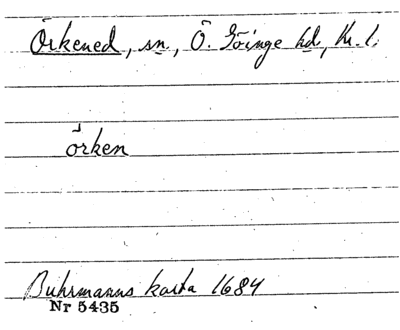 Örkened, sn, Ö. Göinge hd, Kr. l.
örken
Buhrmanns karta 1684
Nr 5435